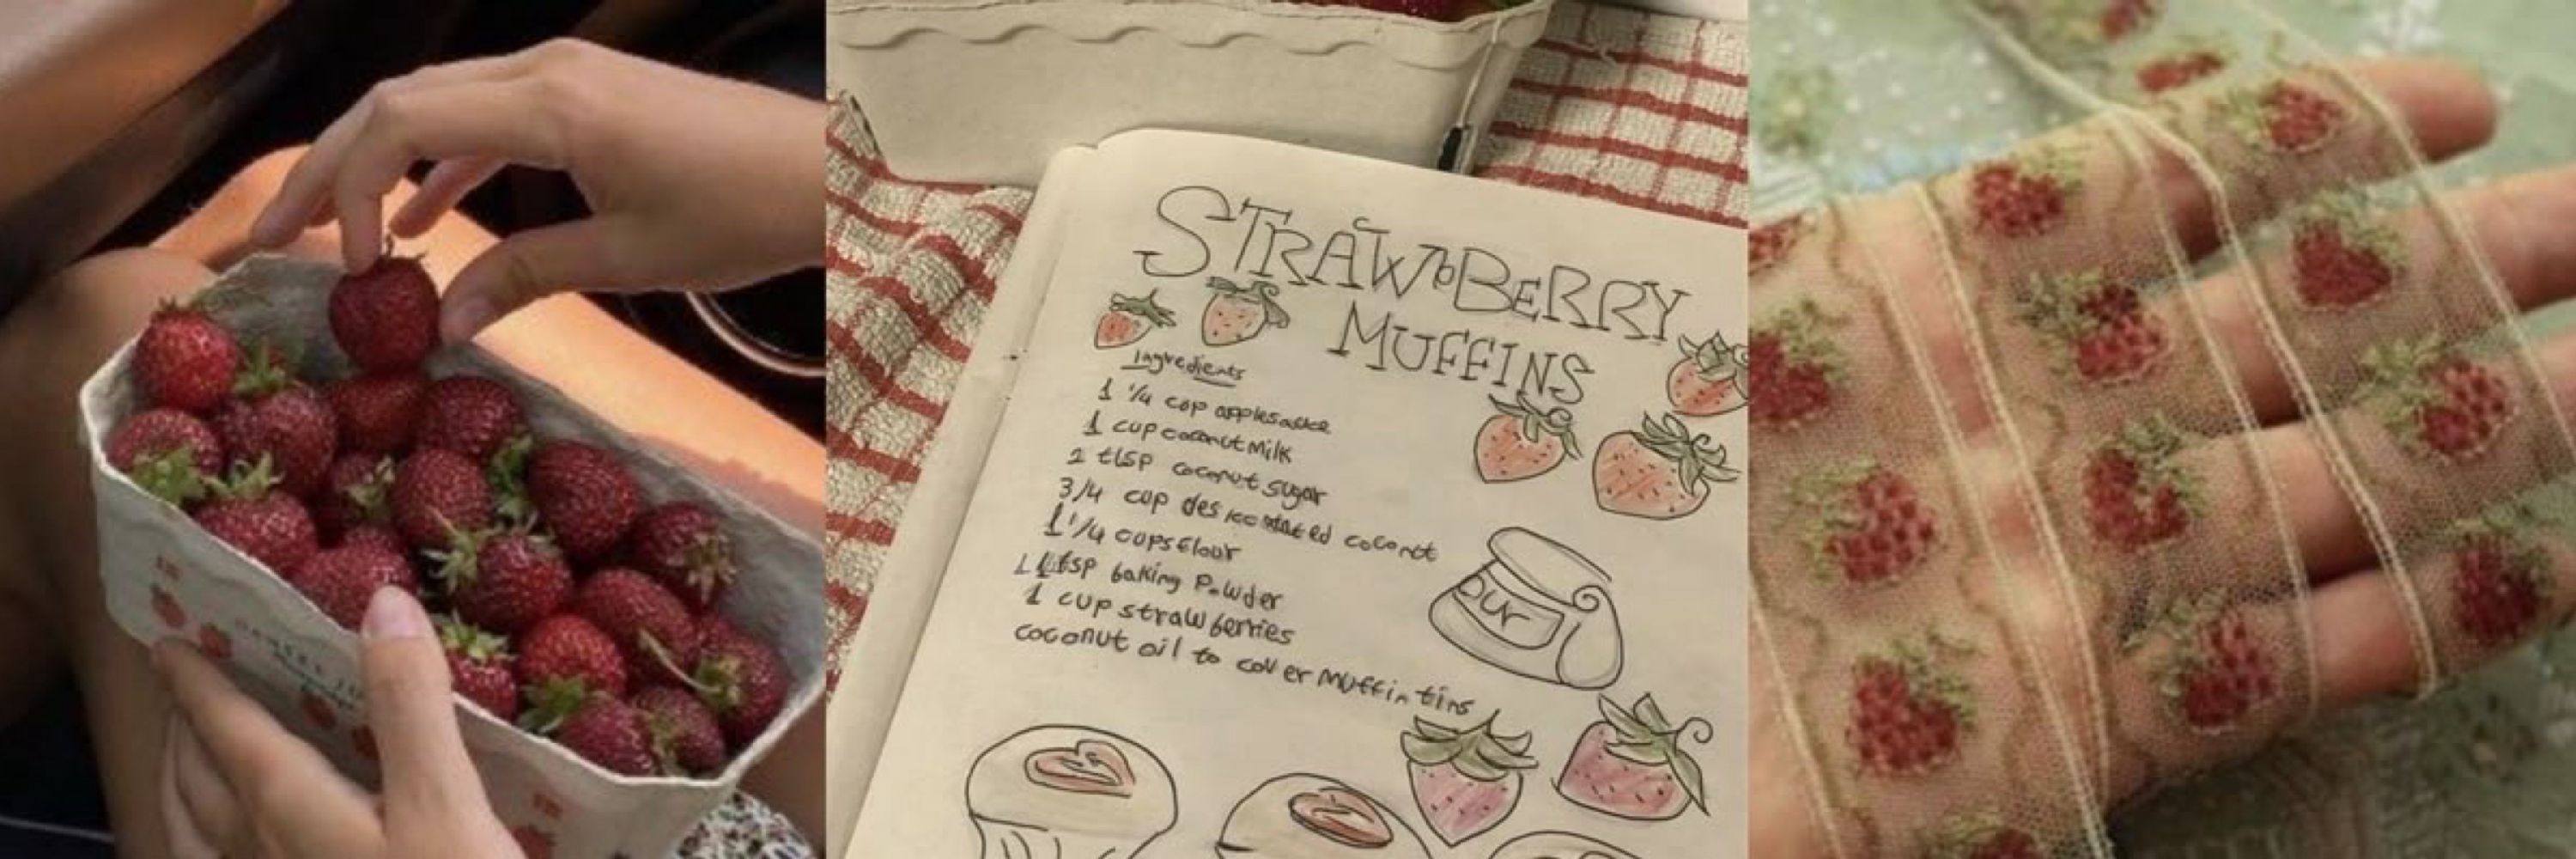 STRAWBERRY
MUFFINS
Ingredients
1 1/4 cup applesauce
1 cup coconut milk
2 tbsp coconut sugar
3/4 cup desiccated coconut
1 1/4 cups flour
1 tsp baking Powder
1 cup strawberries
coconut oil to cover muffin tins
our